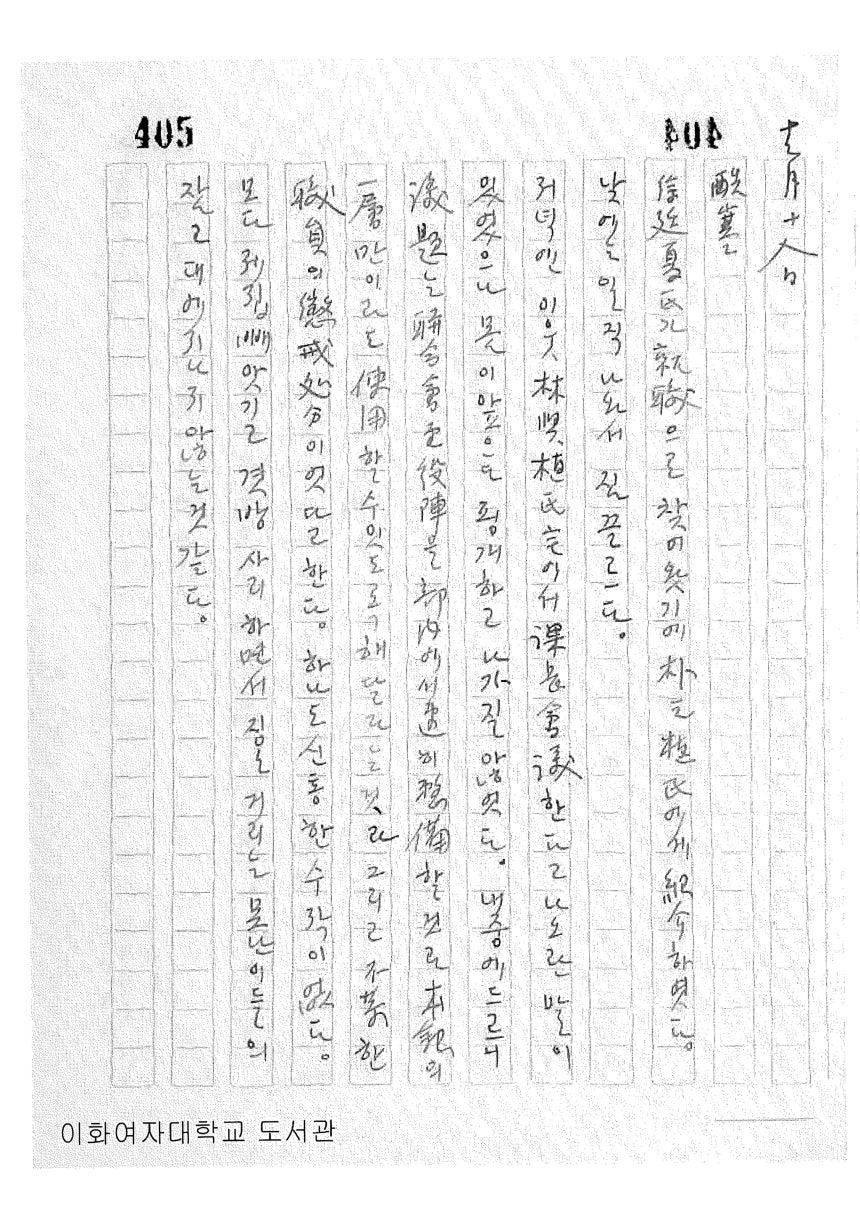 405
404
十一月十八日
酷寒
徐廷夏氏가 就職으로 찾어왓기에 朴元植氏에게 紹介하엿다。
낮에는 일직 나와서 집끌르다。
저녁엔 이웃 林 植氏宅에서 課長會議한다고 나오란 말이
있엇으나 몸이 앞으다 핑게하고 나가질 않엇다。 내중에 드르니
議題는 聯合會 役陣을 部內에서 速히 整備할것과 本館의
一層만이라도 使用할수잇도록 해달라는것과 그리고 不業한
職員의 懲戒処分이엇달고 한다。 하나도 신통한 수작이 없다。
모다 제집 빼앗기고 겻방 사리 하면서 짐 거리는 못난이들의
잘고대에 지나지 않는것 갓다。
이화여자대학교 도서관